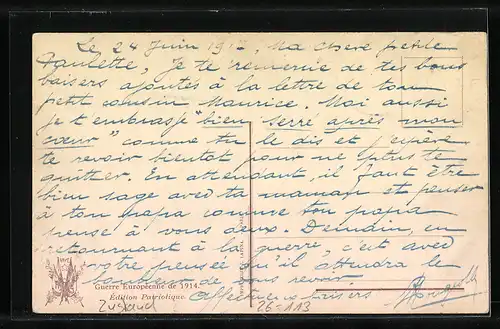 Le 24 Juin 191 , Ma chère petite
Paulette, Je te remercie de tes bons
baisers ajoutés à la lettre de ton
petit cousin Maurice. Moi aussi
je t'embrasse "bien serré après mon
cœur" comme tu le dis et j'espère
te revoir bientôt pour ne plus te
quitter. En attendant, il faut être
bien sage avec ta maman et penser
à ton papa comme ton papa
pense à vous deux. Demain, en
retournant à la guerre, c'est avec
votre pensée qu'il attendra le
bonheur de vous revoir.
Affectueux baisers
Guerre Européenne de 1914
Édition Patriotique.
Zustand
26-113